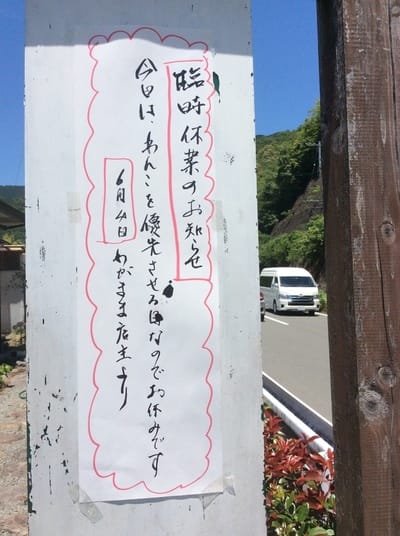 臨時休業のお知らせ
今日は、わんこを優先させる日なのでお休みです
6月4日 わがまま店主より